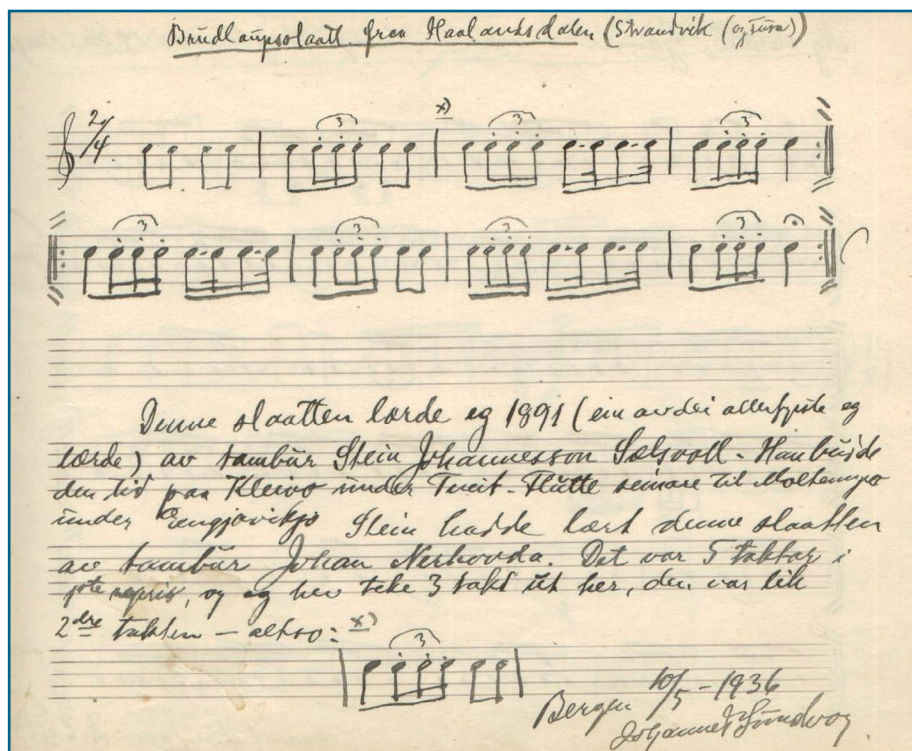 Brudlaupsslaatt fraa Haalandsdalen (Strandvik (og Fusa))
2/4
3 x) 3 3
3 3 3 3
Denne slaatten lærde eg 1891 (ein av dei allerfyrste eg
lærde) av tambur Stein Johannesson Sælsvoll - Han budde
den tid paa Kleivo under Tveit - Flutte seinare til Moltemyro
under Stein hadde lært denne slaatten
av tambur Johan Nerhovda. Det var 5 taktar i
1ste repris, og eg hev teke 3 takt ut her, den var lik
2dre takten - altso: x)
3
Bergen 10/5 - 1936
Johannes Sundvor